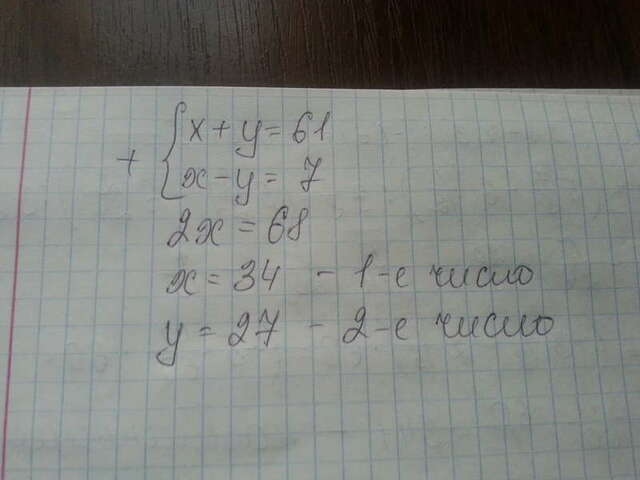 x + y = 61
+ { x - y = 7
2x = 68
x = 34 - 1-е число
y = 27 - 2-е число